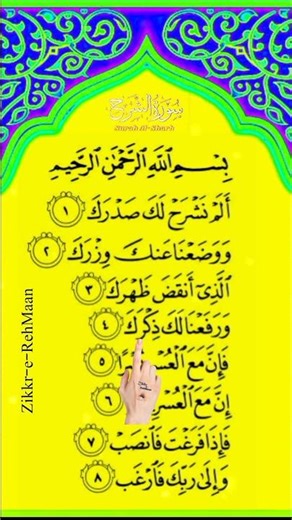 سورة الشرح
Surah Al-Sharh
بِسْمِ اللَّهِ الرَّحْمَٰنِ الرَّحِيمِ
أَلَمْ نَشْرَحْ لَكَ صَدْرَكَ ١
وَوَضَعْنَا عَنكَ وِزْرَكَ ٢
الَّذِي أَنقَضَ ظَهْرَكَ ٣
وَرَفَعْنَا لَكَ ذِكْرَكَ ٤
فَإِنَّ مَعَ الْعُسْرِ ٥
إِنَّ مَعَ الْعُسْرِ ٦
فَإِذَا فَرَغْتَ فَانصَبْ ٧
وَإِلَىٰ رَبِّكَ فَارْغَب ٨
Zikkr-e-RehMaan